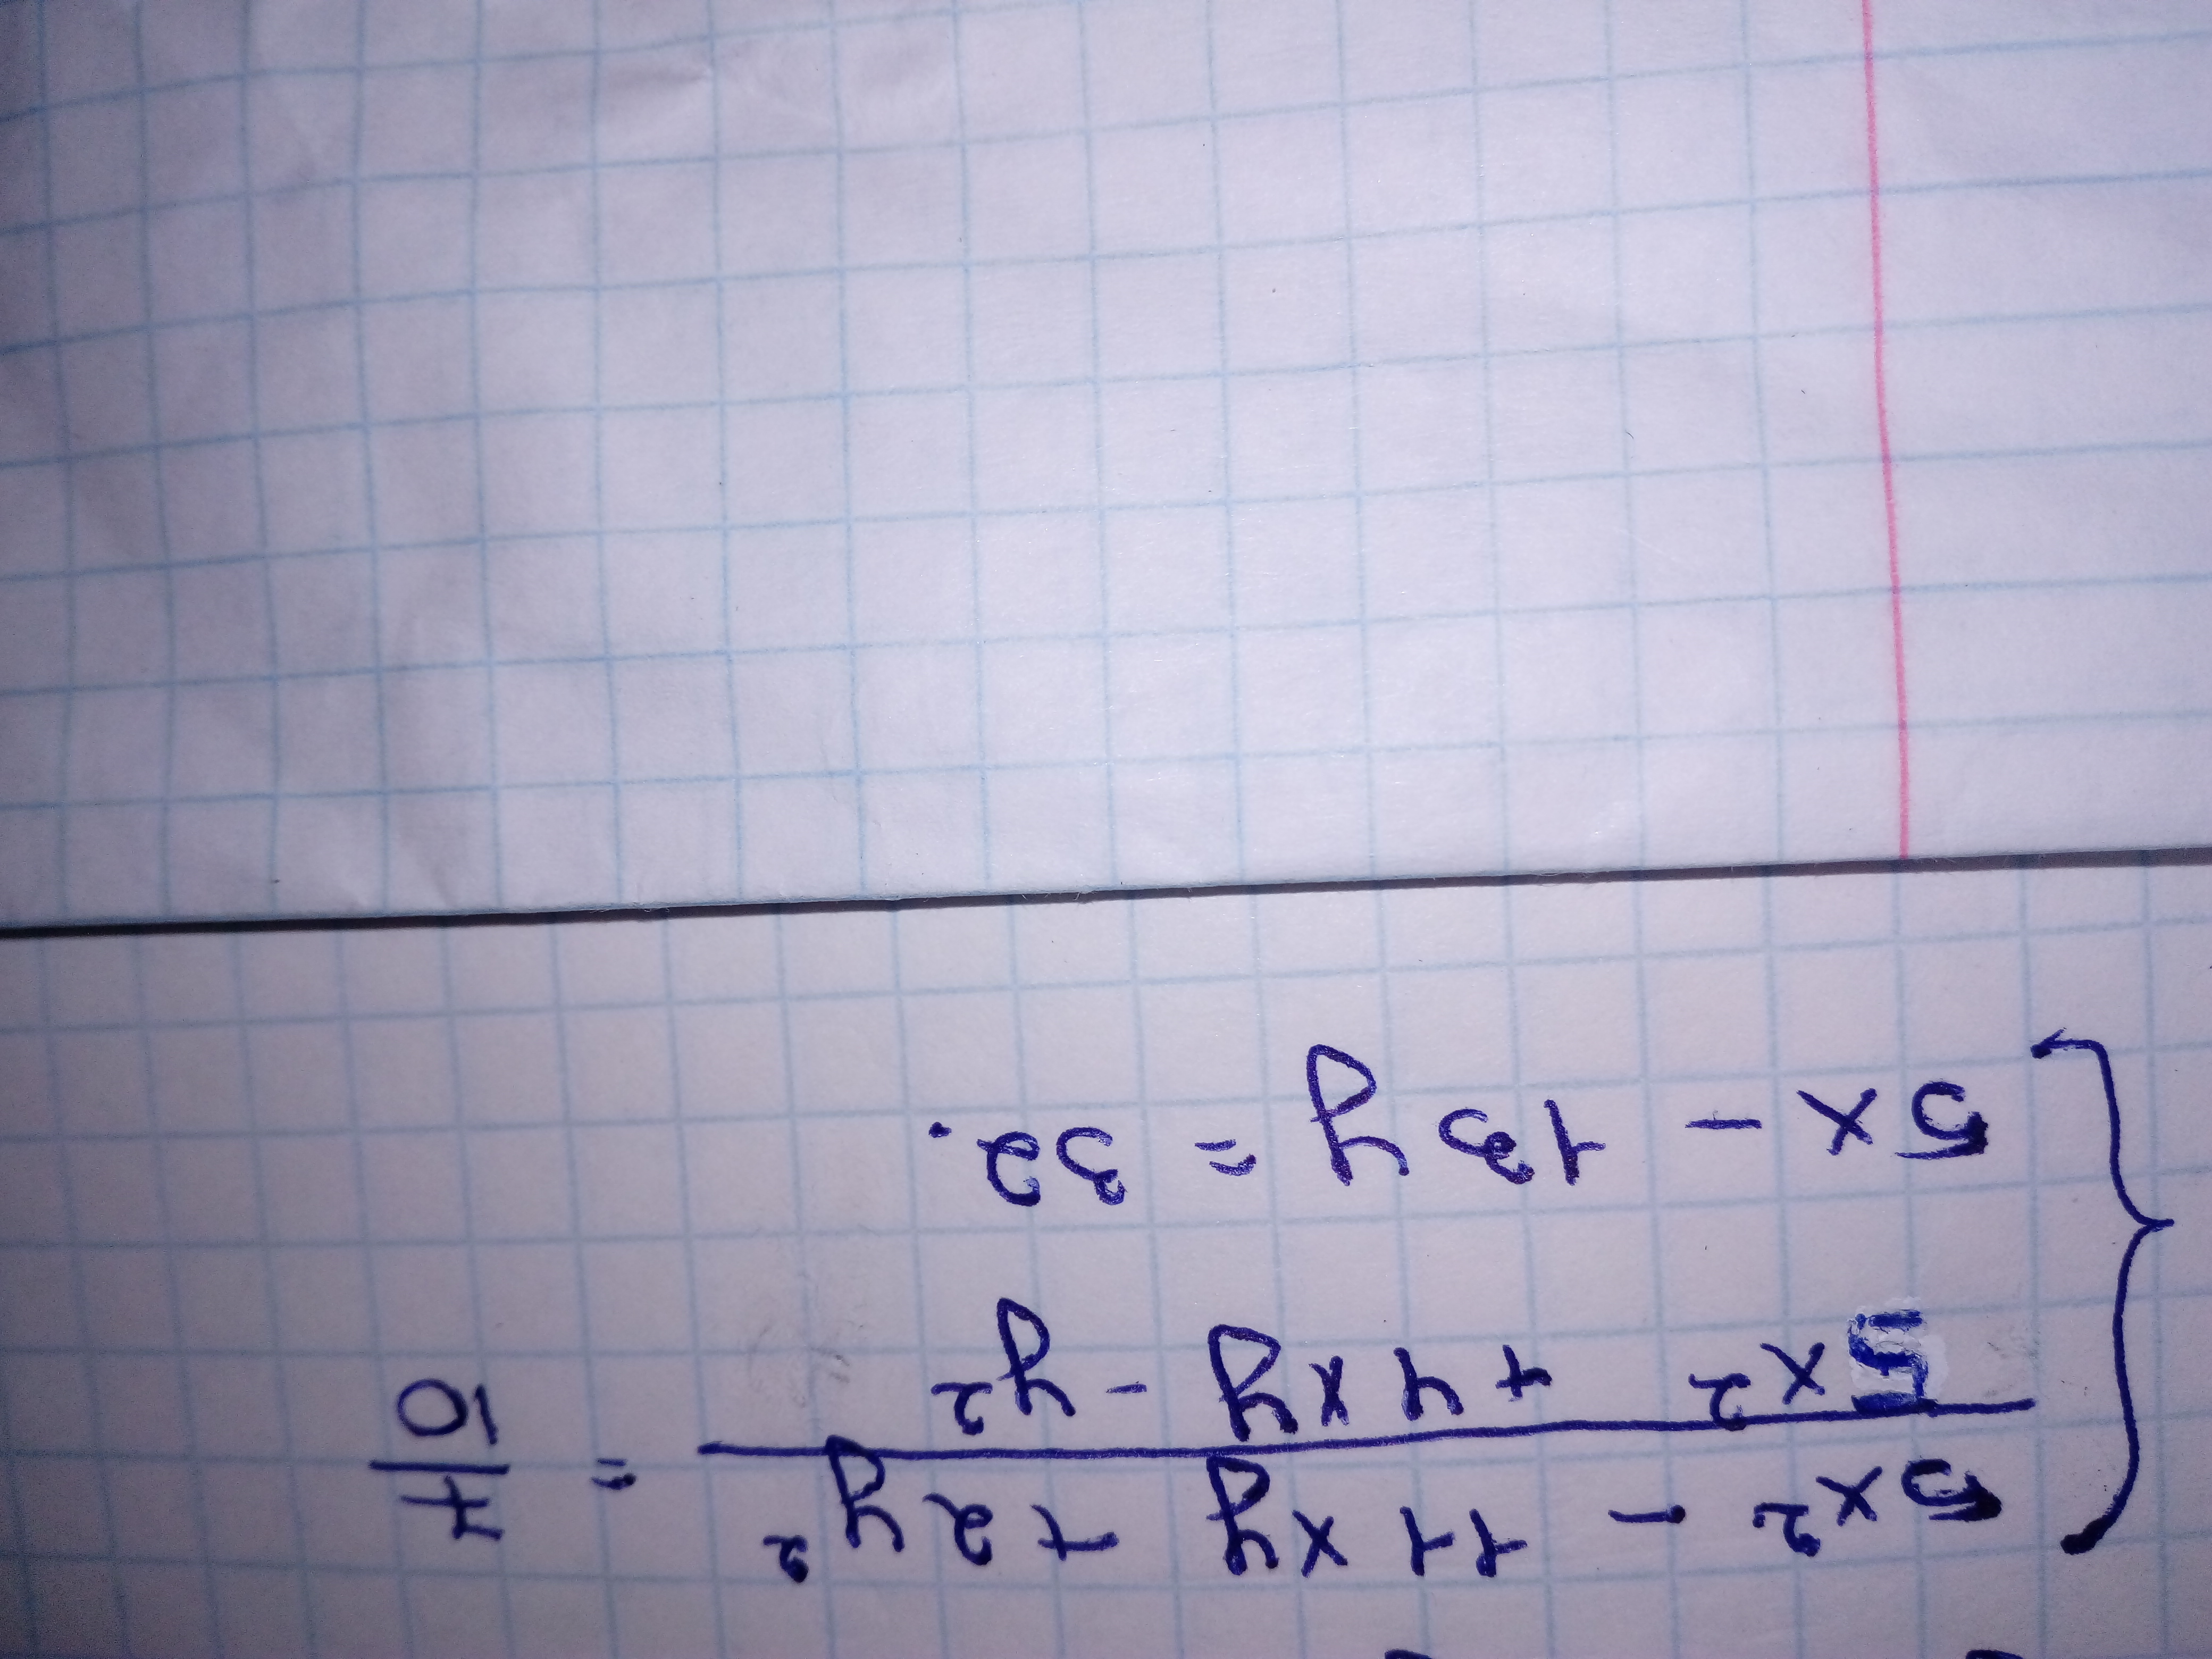 5x² - 11xy + 2y² / 5x² + 4xy - y² = 7/10
5x - 13y = 32.